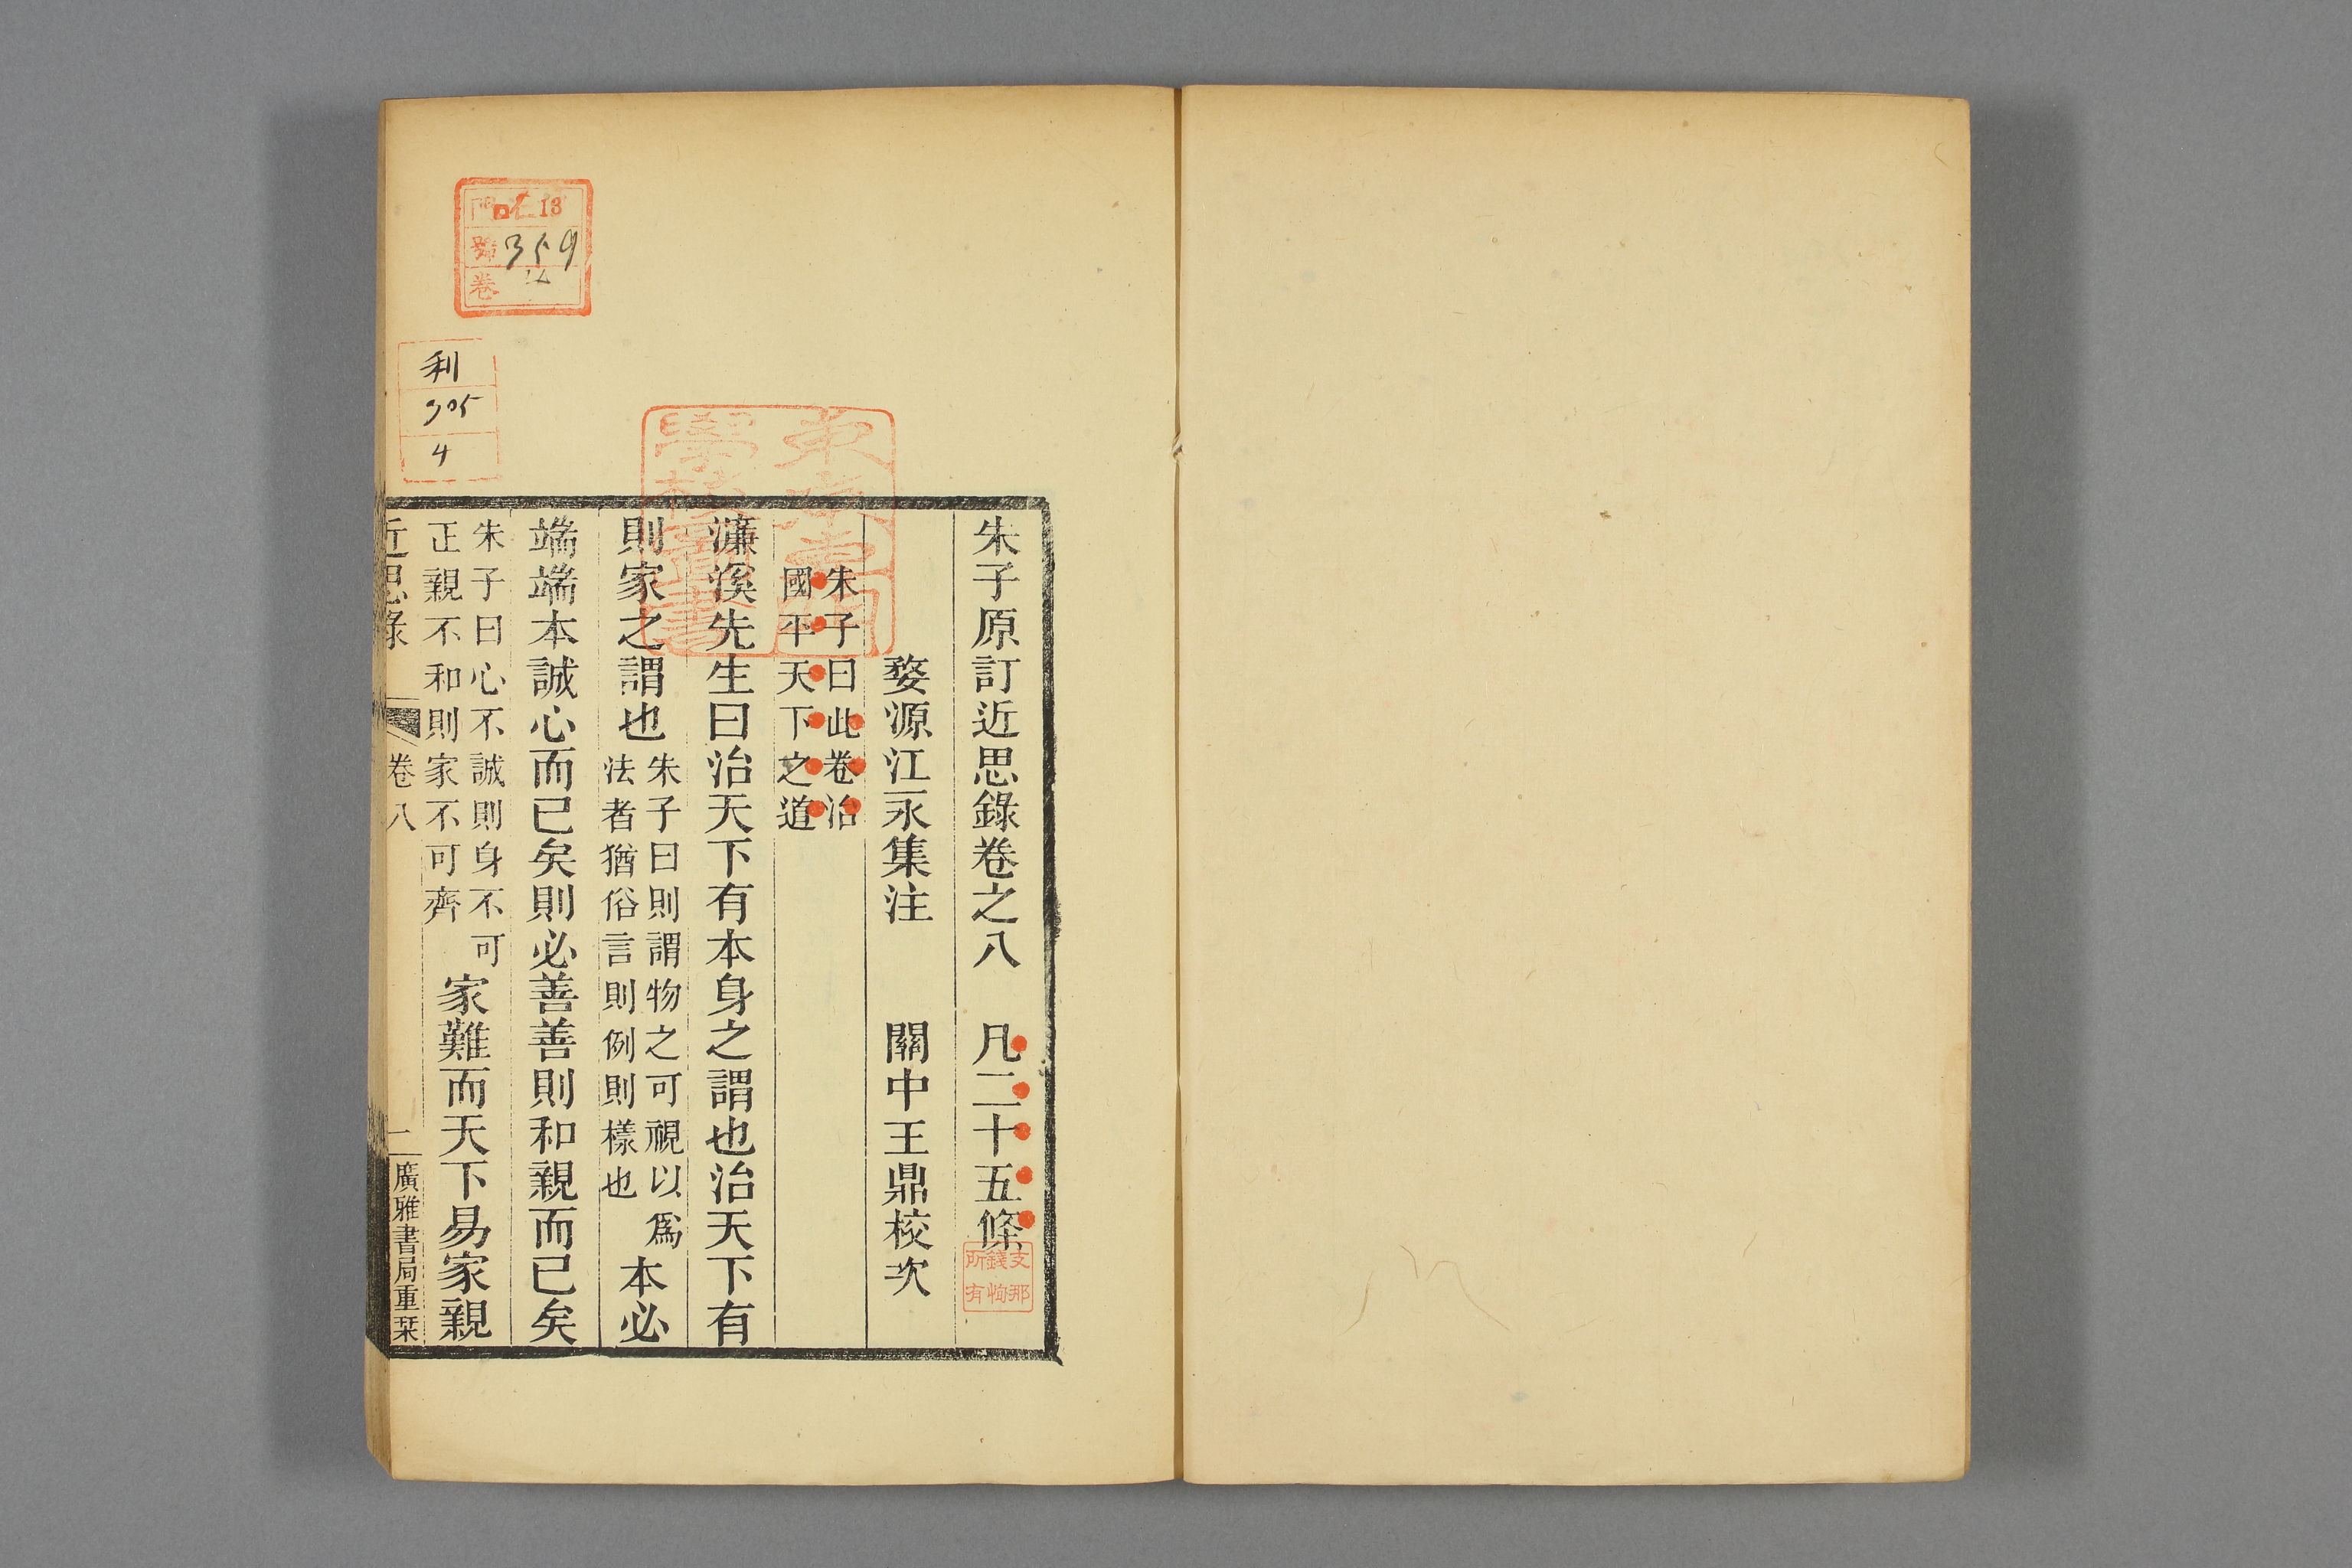 朱子原訂近思錄卷之八　凡二十五條
婺源江永集注　關中王鼎校次
朱子曰此卷治
國平天下之道
濂溪先生曰治天下有本身之謂也治天下有
則家之謂也
朱子曰則謂物之可視以爲
法者猶俗言則例則樣也
本必
端端本誠心而已矣則必善善則和親而已矣
朱子曰心不誠則身不可
正親不和則家不可齊
家難而天下易家親
近思錄　卷八　一　廣雅書局重栞
支那
錢恂
所有
13
號 359
卷
利
305
4